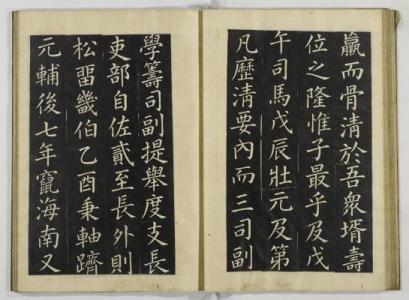 羸而骨清於吾衆壻壽
位之隆惟子最乎及戊
午司馬戊辰壯元及第
凡歷淸要內而三司副
學籌司副提舉度支長
吏部自佐貳至長外則
松畱畿伯乙酉秉軸躋
元輔後七年竄海南又